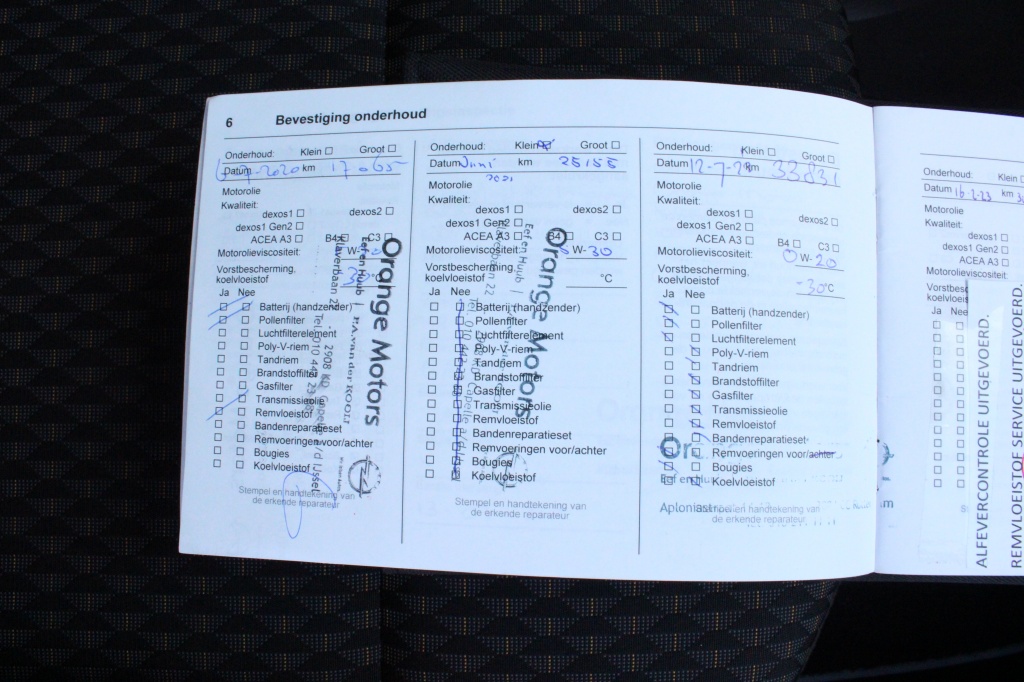 6 Bevestiging onderhoud
Onderhoud: Klein Groot
Datum 7-2020 km 17065
Motorolie
Kwaliteit:
dexos1 dexos2
dexos1 Gen2
ACEA A3 B4 C3
Motorolieviscositeit: W-
Vorstbescherming,
koelvloeistof 30°C
Ja Nee
Batterij (handzender)
Pollenfilter
Luchtfilterelement
Poly-V-riem
Tandriem
Brandstoffilter
Gasfilter
Transmissieolie
Remvloeistof
Bandenreparatieset
Remvoeringen voor/achter
Bougies
Koelvloeistof
Stempel en handtekening van
de erkende reparateur
Orange Motors
Eef en Huub | P.A. van der KOOIJ
Klaverbaan 2 2908 KD Capelle a/d IJssel
Tel. 010 442 23
Onderhoud: Klein Groot
Datum Juni km 25155
2021
Motorolie
Kwaliteit:
dexos1 dexos2
dexos1 Gen2
ACEA A3 B4 C3
Motorolieviscositeit: W-30
Vorstbescherming,
koelvloeistof °C
Ja Nee
Batterij (handzender)
Pollenfilter
Luchtfilterelement
Poly-V-riem
Tandriem
Brandstoffilter
Gasfilter
Transmissieolie
Remvloeistof
Bandenreparatieset
Remvoeringen voor/achter
Bougies
Koelvloeistof
Stempel en handtekening van
de erkende reparateur
Orange Motors
Eef en Huub
Onderhoud: Klein Groot
Datum 12-7-2 km 33831
Motorolie
Kwaliteit:
dexos1 dexos2
dexos1 Gen2
ACEA A3 B4 C3
Motorolieviscositeit: 0W-20
Vorstbescherming,
koelvloeistof -30°C
Ja Nee
Batterij (handzender)
Pollenfilter
Luchtfilterelement
Poly-V-riem
Tandriem
Brandstoffilter
Gasfilter
Transmissieolie
Remvloeistof
Bandenreparatieset
Remvoeringen voor/achter
Bougies
Koelvloeistof
Stempel en handtekening van
de erkende reparateur
Onderhoud: Klein
Datum 16-2-23 km
Motorolie
Kwaliteit:
dexos1
dexos1 Gen2
ACEA A3
Motorolieviscositeit:
Ja Nee
ALFEVERCONTROLE UITGEVOERD.
REMVLOEISTOF SERVICE UITGEVOERD.